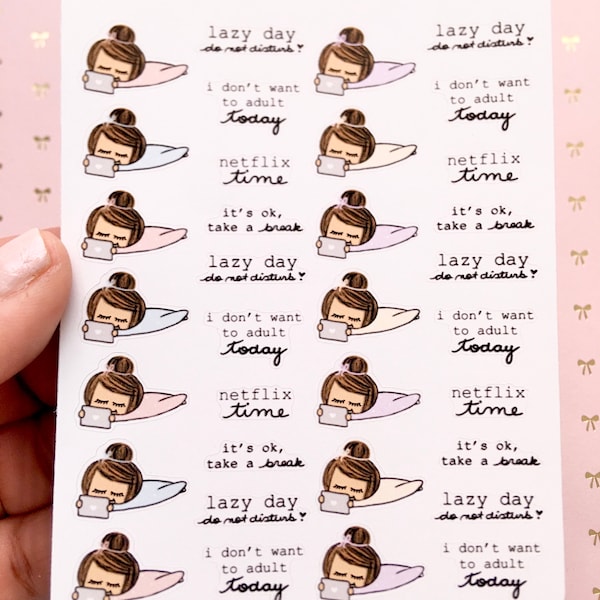 lazy day
do not disturb!
i don't want
to adult
today
netflix
time
it's ok,
take a break
lazy day
do not disturb!
i don't want
to adult
today
netflix
time
it's ok,
take a break
lazy day
do not disturb!
i don't want
to adult
today
lazy day
do not disturb!
i don't want
to adult
today
netflix
time
it's ok,
take a break
lazy day
do not disturb!
i don't want
to adult
today
netflix
time
it's ok,
take a break
lazy day
do not disturb!
i don't want
to adult
today